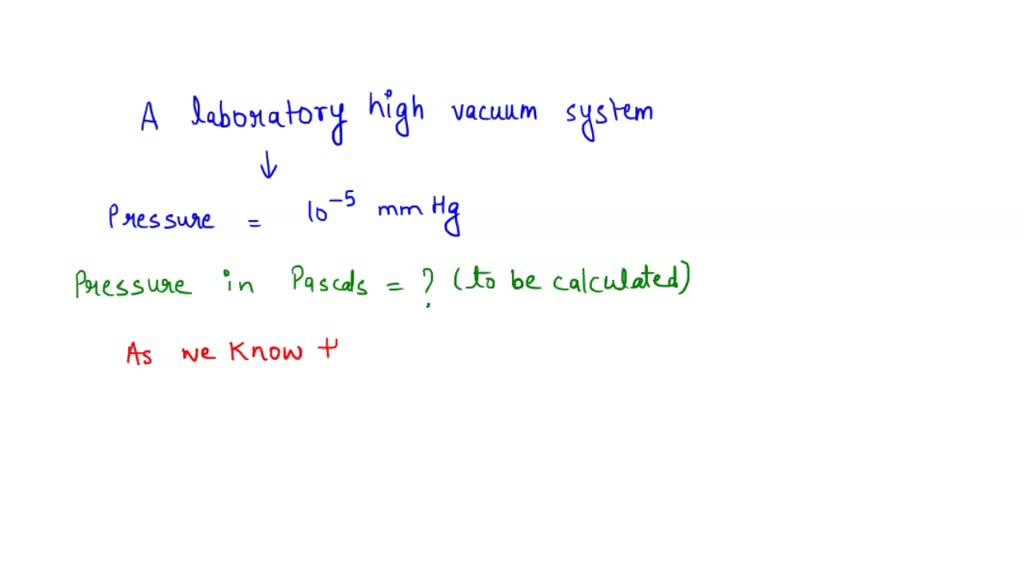 A laboratory high vacuum system
↓
Pressure = 10⁻⁵ mm Hg
Pressure in Pascals = ? (to be calculated)
As we know t